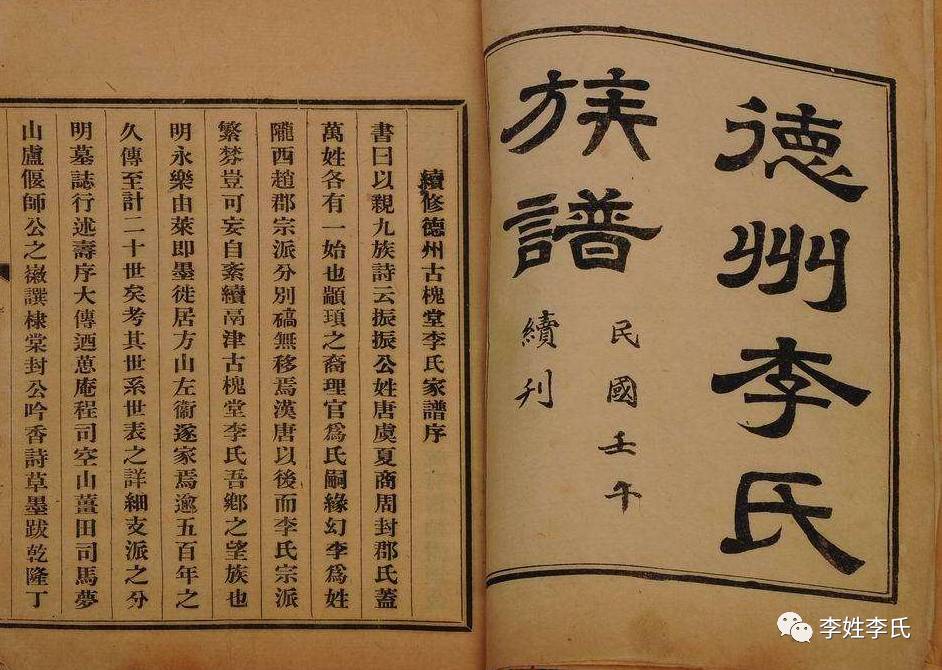 德州李氏
族譜
民國壬午
續刊
續修德州古槐堂李氏家譜序
書曰以親九族詩云振振公姓唐虞夏商周封郡氏蓋
萬姓各有一始也顓頊之裔理官爲氏嗣緣幻李爲姓
隴西趙郡宗派分別碻無移焉漢唐以後而李氏宗派
繁棼豈可妄自紊續鬲津古槐堂李氏吾鄉之望族也
明永樂由萊即墨徙居方山左衞遂家焉逾五百年之
久傳至計二十世矣考其世系世表之詳細支派之分
明墓誌行述壽序大傳迺蒽庵程司空山薑田司馬夢
山盧偃師公之嶶譔棣棠封公吟香詩草墨跋乾隆丁
李姓李氏